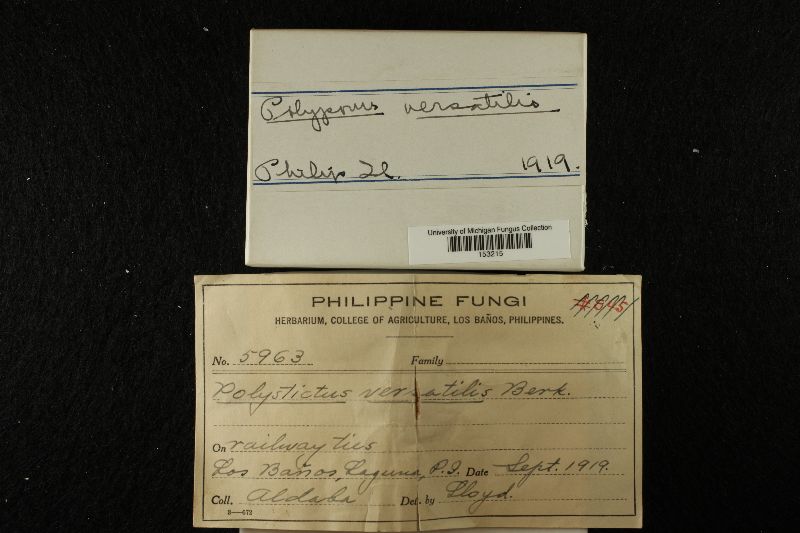 Polyporus versatilis
Philip Il. 1919.
University of Michigan Fungus Collection
153215
PHILIPPINE FUNGI
HERBARIUM, COLLEGE OF AGRICULTURE, LOS BAÑOS, PHILIPPINES.
No. 5963 Family
Polystictus versatilis Berk.
On railway ties
Los Baños, Laguna, P.I. Date Sept. 1919.
Coll. Aldaba Det. by Lloyd.